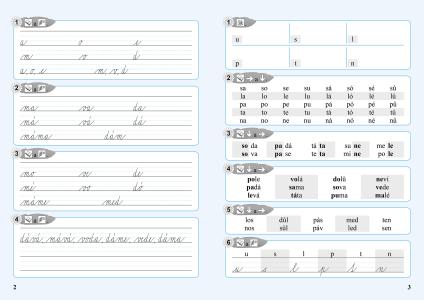 1
a o e
m v d
a, o, e m, v, d
2
ma va da
má vá dá
máma dám
3
mo ve de
mé vo dó
máme med
4
dává, mává, voda, dáme, vede, dáma
2
1
u s l
p t n
2
sa so se su sá só sé sů
la lo le lu lá ló lé lů
pa po pe pu pá pó pé pů
ta to te tu tá tó té tů
na no ne nu ná nó né nů
3
so da pa dá tá ta su ne me le
so va pa se te ta mi ne po le
4
pole volá dolů neví
padá sama sova vede
levá táta puma malé
5
los důl pás med ten
nos sůl páv led sen
6
u s l p t n
u s l p t n
3